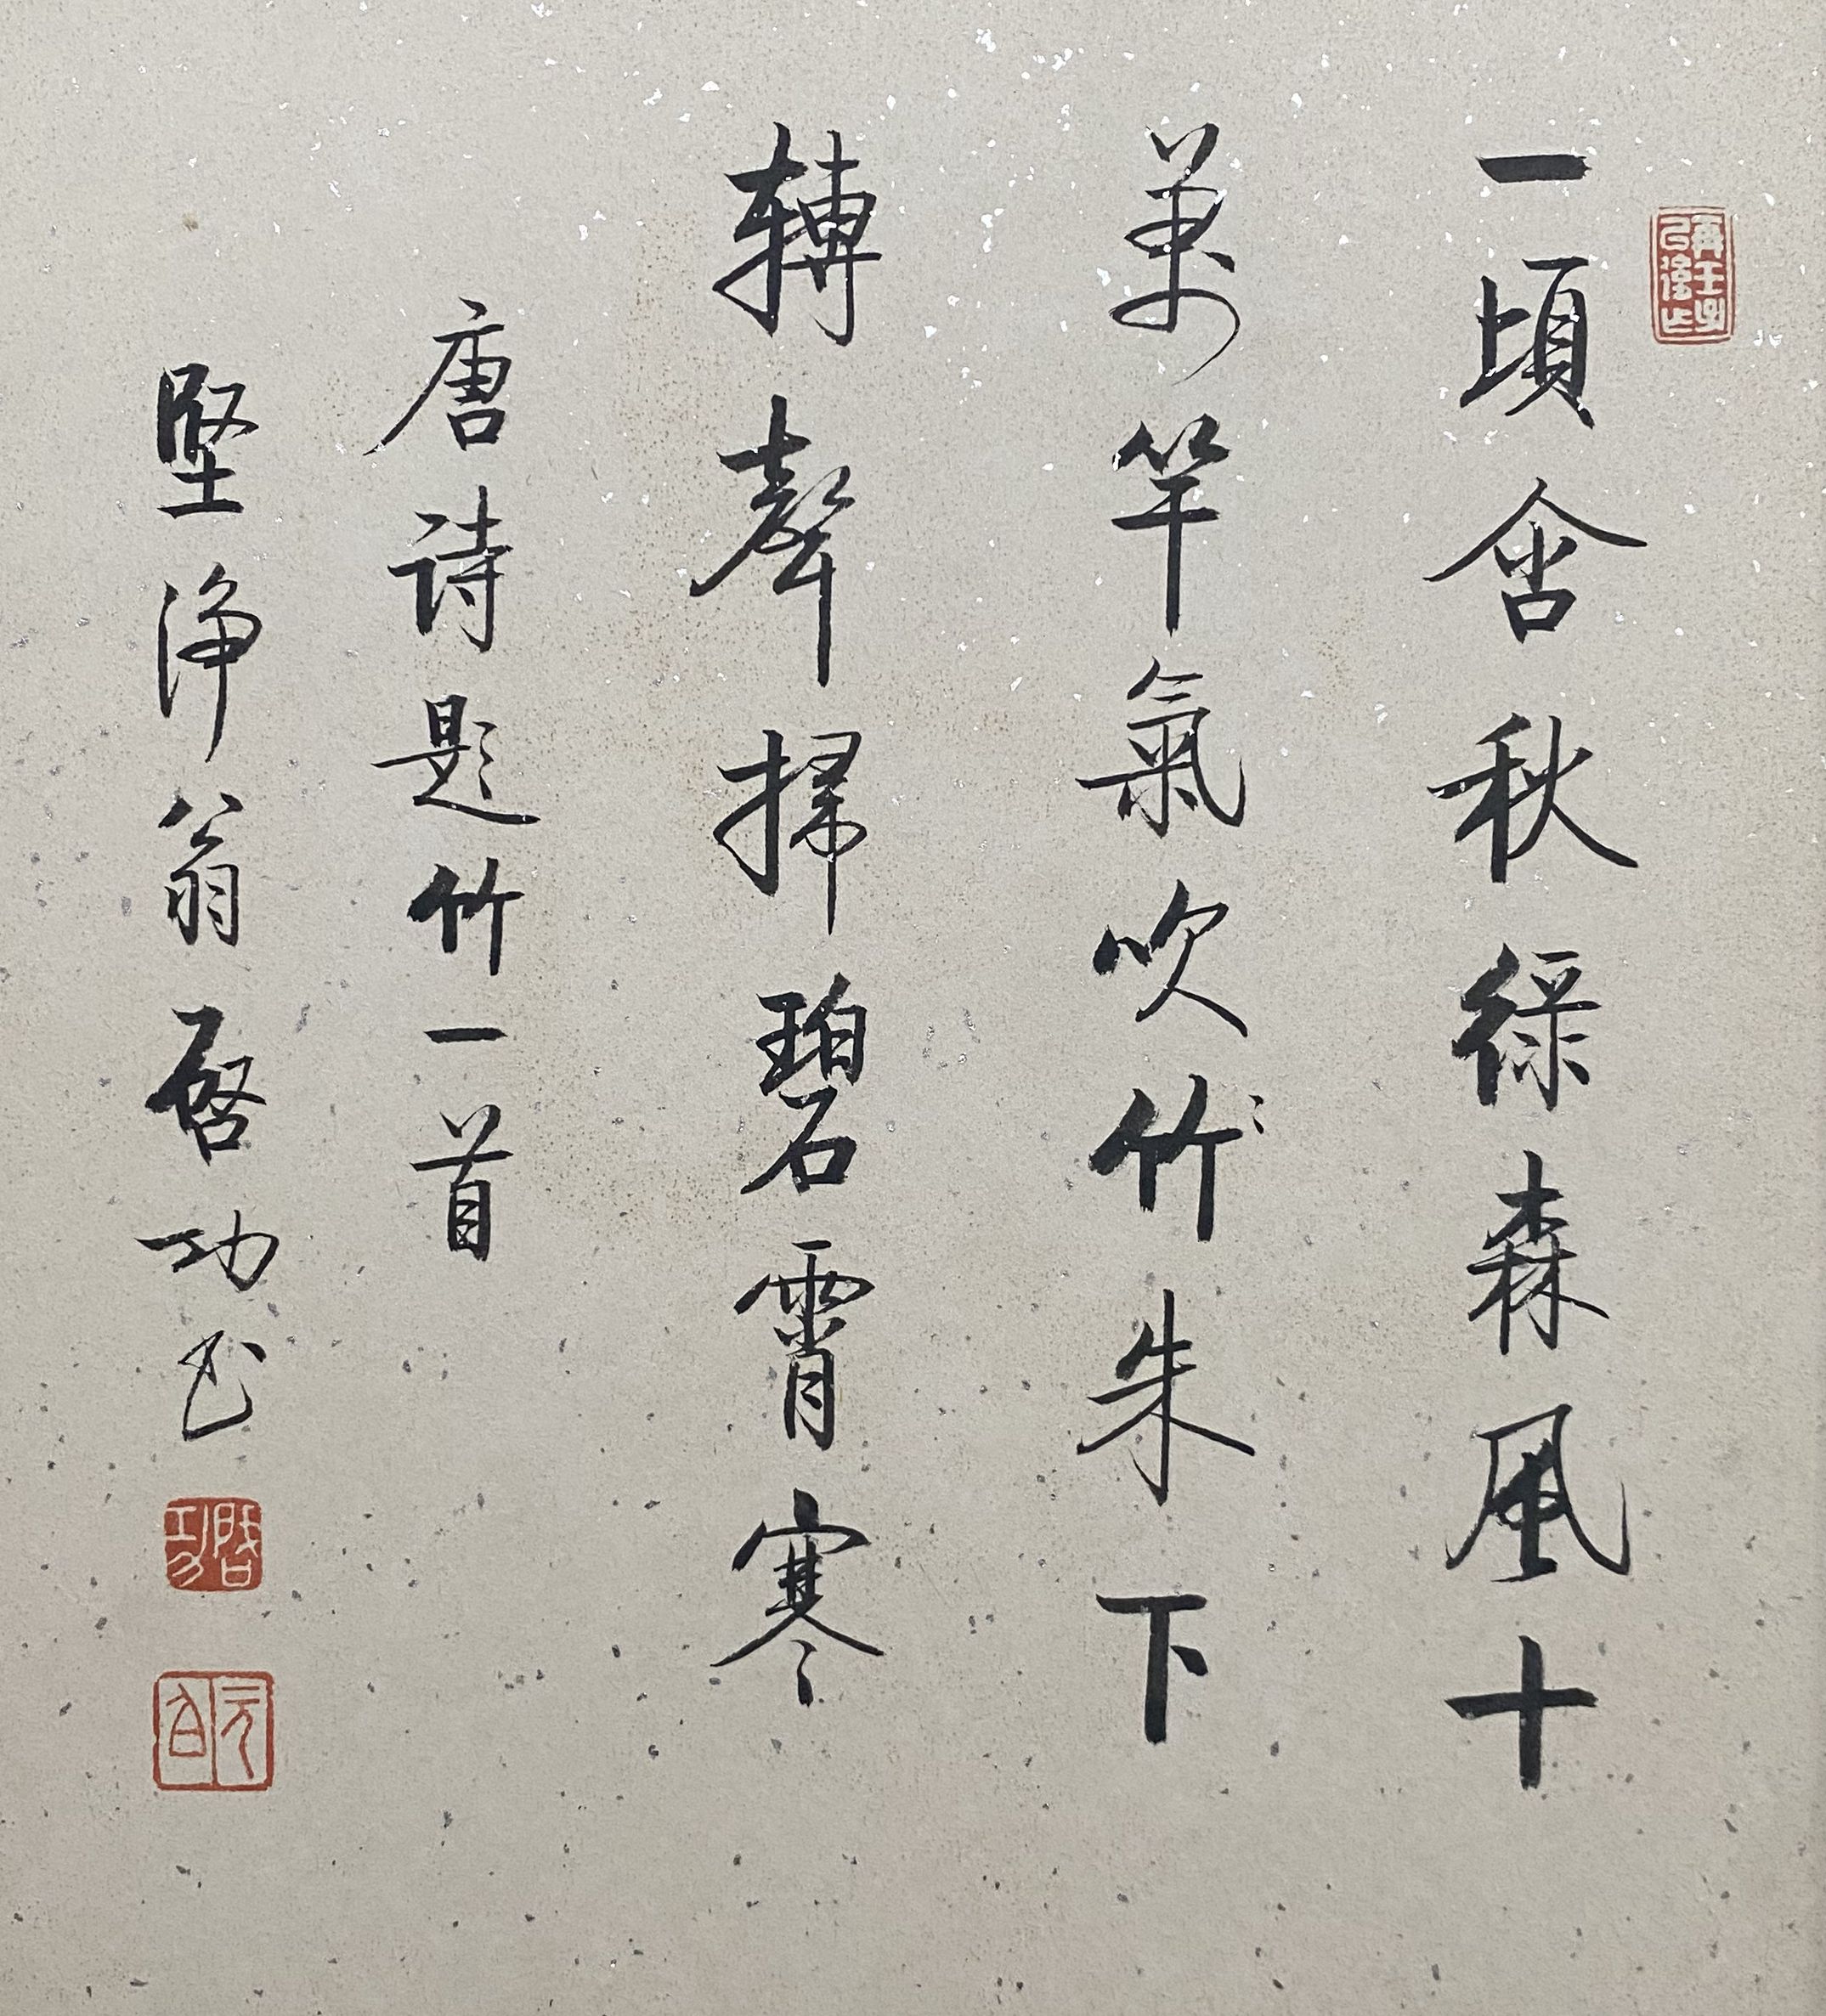 一頃含秋綠森風十
萬竿氣吹竹〻朱下
轉聲掃碧霄寒
唐诗題竹一首
堅浄翁啓功书
啓功
元白